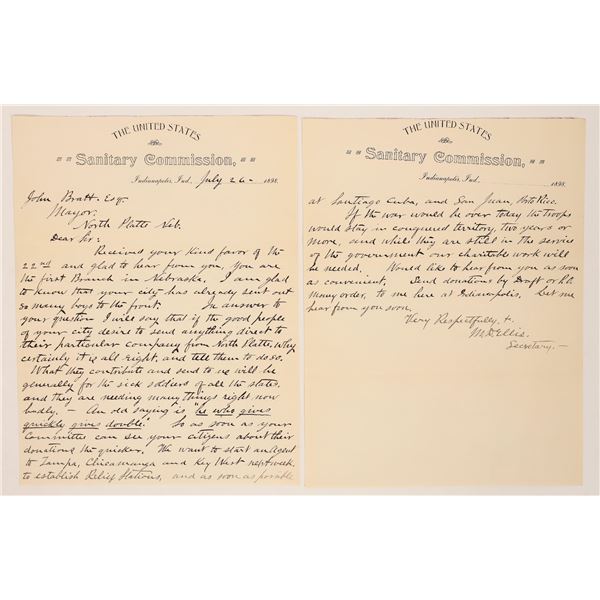 THE UNITED STATES
Sanitary Commission,
Indianapolis, Ind., July 26- 1898.
John Bratt. Esq-
Mayor;
North Platte Neb.
Dear Sir:
Received your Kind favor of the
22nd and glad to hear from you, You are
the first Branch in Nebraska. I am glad
to know that your city has already sent out
so many boys to the front. In answer to
your question I will say that if the good people
of your city desire to send anything direct to
their particular company from North Platte, Why
certainly it is all right, and tell them to do so.
What they contribute and send to us will be
generally for the sick soldiers of all the states,
and they are needing many things right now
badly. - An old saying is "he who gives
quickly gives double." So as soon as your
Committee can see your citizens about their
donations the quicker. We want to start an Agent
to Tampa, Chicamauga and Key West next week,
to establish Relief Stations, and as soon as possible
THE UNITED STATES
Sanitary Commission,
Indianapolis, Ind., 1898.
at Santiago Cuba, and San Juan, Porto Rico.
If the war would be over today the Troops
would stay in conquered territory, two years or
more, and while they are still in the service
of the government our charitable work will
be needed. Would like to hear from you as soon
as convenient. Send donations by Draft or P.O.
Money order, to me here at Indianapolis. Let me
hear from you soon.
Very Respectfully,
M. D. Ellis.
Secretary.-